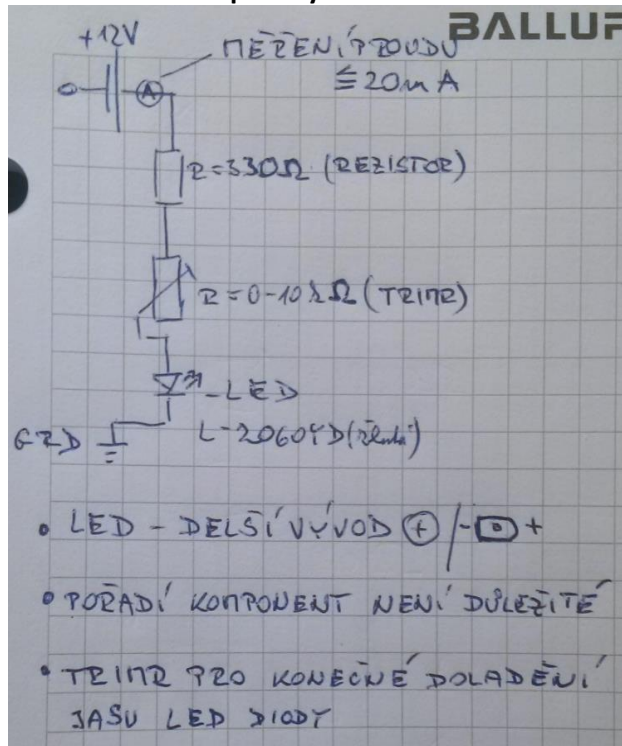 BALLUF
+12V
MĚŘENÍ PROUDU
≤ 20mA
A
R=330Ω (REZISTOR)
R=0-10kΩ (TRIMR)
LED
L-2060YD (žlutá)
GRD
• LED - DELŠÍ VÝVOD ⊕ / - +
• POŘADÍ KOMPONENT NENÍ DŮLEŽITÉ
• TRIMR PRO KONEČNÉ DOLADĚNÍ
JASU LED DIODY